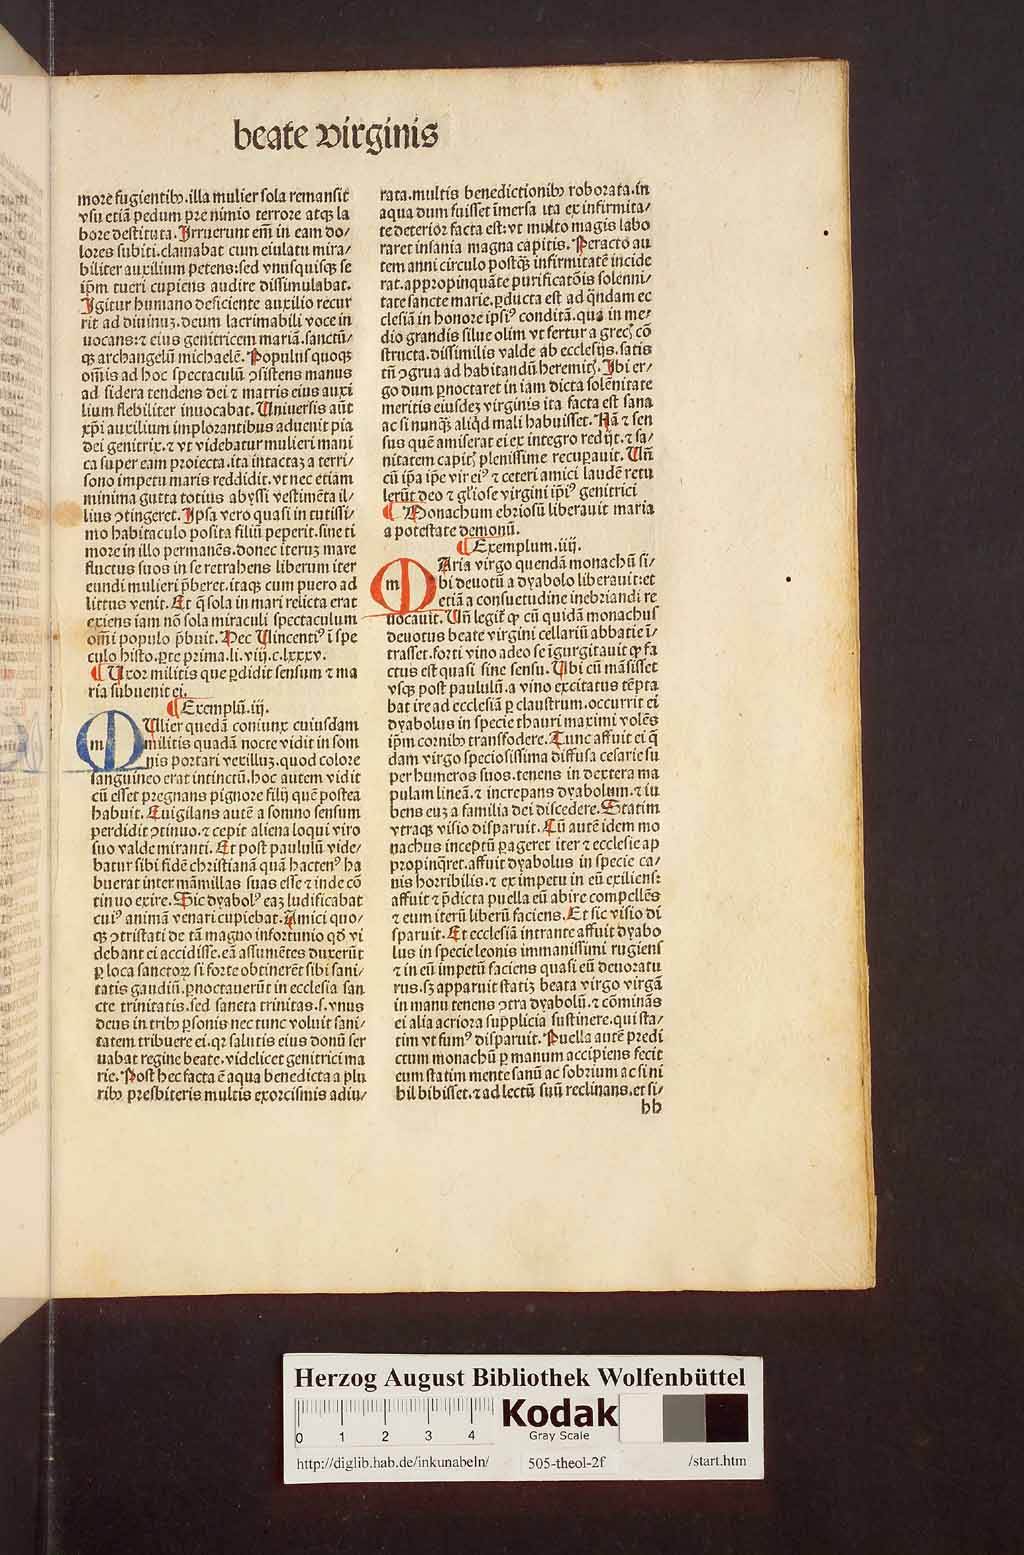 beate virginis
more fugientibꝰ.illa mulier sola remansit
vsu etiā pedum pre nimio terrore atqꝫ la
bore destituta.Irruerunt em̄ in eam do/
lores subiti.clamabat cum eiulatu mira/
biliter auxilium petens:sed vnusquisqꝫ se
ip̄m tueri cupiens audire dissimulabat.
Igitur humano deficiente auxilio recur
rit ad diuinuꝫ.deum lacrimabili voce in
uocans:⁊ eius genitricem mariā.sanctū/
qꝫ archangelū michaelē.Populus quoqꝫ
om̄is ad hoc spectaculū ↄsistens manus
ad sidera tendens dei ⁊ matris eius auxi
lium flebiliter inuocabat.Uniuersis aūt
xp̄i auxilium implorantibus aduenit pia
dei genitrix.⁊ vt videbatur mulieri mani
ca super eam proiecta.ita intactaꝫ a terri/
sono impetu maris reddidit.vt nec etiam
minima gutta totius abyssi vestimēta il/
lius ↄtingeret.Ipsa vero quasi in tutissi/
mo habitaculo posita filiū peperit.sine ti
more in illo permanēs.donec iteruꝫ mare
fluctus suos in se retrahens liberum iter
eundi mulieri p̄beret.itaqꝫ cum puero ad
littus venit.Et q̄ sola in mari relicta erat
exiens iam nō sola miraculi spectaculum
om̄i populo p̄buit.Hec Uincentiꝰ ī spe
culo histo.ꝑte prima.li.viij.c.lxxxv.
¶ Uxor militis que ꝑdidit sensum ⁊ ma
ria subuenit ei.
¶ Exemplū.iij.
m Ulier quedā coniunx cuiusdam
militis quadā nocte vidit in som
nis portari vexilluꝫ.quod colore
sanguineo erat intinctū.hoc autem vidit
cū esset pregnans pignore filij quē postea
habuit.Euigilans autē a somno sensum
perdidit ↄtinuo.⁊ cepit aliena loqui viro
suo valde miranti.Et post paululū vide/
batur sibi fidē christianā quā hactenꝰ ha
buerat inter māmillas suas esse ⁊ inde cō
tinuo exire.Sic dyabolꝰ eaꝫ ludificabat
cuiꝰ animā venari cupiebat.Amici quo/
qꝫ ↄtristati de tā magno infortunio qd̄ vi
debant ei accidisse.eā assumētes duxerūt
ꝑ loca sanctoꝝ si forte obtinerēt sibi sani/
tatis gaudiū.ꝑnoctauerūt in ecclesia san
cte trinitatis.sed sancta trinitas.s.vnus
deus in tribꝰ ꝑsonis nec tunc voluit sani/
tatem tribuere ei.qꝛ salutis eius donū ser
uabat regine beate.videlicet genitrici ma
rie.Post hec facta ē aqua benedicta a plu
ribꝰ presbiteris multis exorcismis adiu/
rata.multis benedictionibꝰ roborata.in
aqua dum fuisset īmersa ita ex infirmita/
te deterior facta est:vt multo magis labo
raret insania magna capitis.Peracto au
tem anni circulo postqꝫ infirmitatē incide
rat.appropinquāte purificatōis solenni/
tate sancte marie.ꝑducta est ad q̄ndam ec
clesiā in honore ipsiꝰ conditā.qua in me/
dio grandis silue olim vt fertur a grecꝭ cō
structa.dissimilis valde ab ecclesijs.satis
tū ↄgrua ad habitandū heremitꝭ.Ibi er/
go dum ꝑnoctaret in iam dicta solēnitate
meritis eiusdeꝫ virginis ita facta est sana
ac si nunqꝫ aliqd mali habuisset.Nā ⁊ sen
sus quē amiserat ei ex integro redijt.⁊ sa/
nitatem capitꝭ plenissime recuꝑauit.Un̄
cū ip̄a ip̄e vir eiꝰ ⁊ ceteri amici laudē retu
lerūt deo ⁊ gl̄iose virgini ip̄iꝰ genitrici
¶ Monachum ebriosū liberauit maria
a potestate demonū.
¶ Exemplum.iiij.
m Aria virgo quendā monachū si/
bi deuotū a dyabolo liberauit:et
etiā a consuetudine inebriandi re
uocauit.Un̄ legit̄ ꝙ cū quidā monachus
deuotus beate virgini cellariū abbatie ī/
trasset.forti vino adeo se īgurgitauit ꝙ fa
ctus est quasi sine sensu.Ubi cū māsisset
vsqꝫ post paululū.a vino excitatus tēpta
bat ire ad ecclesiā ꝑ claustrum.occurrit ei
dyabolus in specie thauri maximi volēs
ip̄m cornibꝰ transfodere.Tunc affuit ei q̄
dam virgo speciosissima diffusa cesarie su
per humeros suos.tenens in dextera ma
pulam lineā.⁊ increpans dyabolum.⁊ iu
bens euꝫ a familia dei discedere.Statim
vtraqꝫ visio disparuit.Cū autē idem mo
nachus inceptū ꝑageret iter ⁊ ecclesie ap
propinq̄ret.affuit dyabolus in specie ca/
nis horribilis.⁊ ex impetu in eū exiliens:
affuit ⁊ p̄dicta puella eū abire compellēs
⁊ eum iterū liberū faciens.Et sic visio di
sparuit.Et ecclesiā intrante affuit dyabo
lus in specie leonis immanissimi rugiens
⁊ in eū impetū faciens quasi eū deuoratu
rus.sꝫ apparuit statiꝫ beata virgo virgā
in manu tenens ↄtra dyabolū.⁊ cōminās
ei alia acriora supplicia sustinere.qui sta/
tim vt fumꝰ disparuit.Puella autē predi
ctum monachū ꝑ manum accipiens fecit
eum statim mente sanū ac sobrium ac si ni
hil bibisset.⁊ ad lectū suū reclinans.et si/
bb
Herzog August Bibliothek Wolfenbüttel
0 1 2 3 4
Kodak
Gray Scale
http://diglib.hab.de/inkunabeln/ 505-theol-2f /start.htm